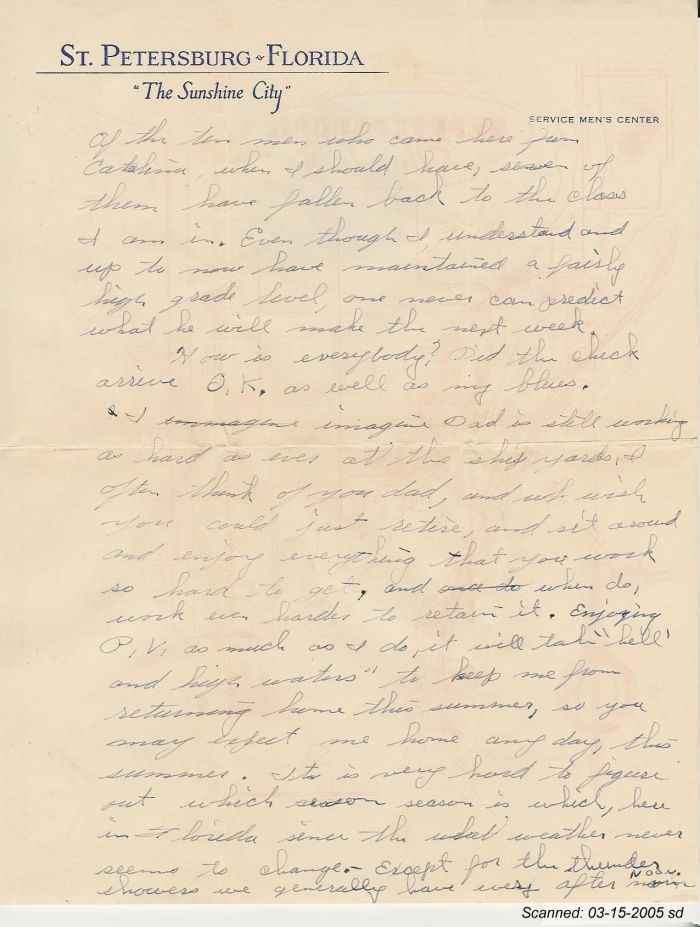 ST. PETERSBURG ~ FLORIDA
"The Sunshine City"
SERVICE MEN'S CENTER
Of the ten men who came here from
Catalina, when I should have, seven of
them have fallen back to the class
I am in. Even though I understand and
up to now have maintained a fairly
high grade level, one never can predict
what he will make the next week.
How is everybody? Did the check
arrive O.K. as well as my blues.
I immagine imagine Dad is still working
as hard as ever at the ship yards, I
often think of you dad, and wish
you could just retire, and sit around
and enjoy everything that you work
so hard to get, and when do,
work even harder to retain it. Enjoying
P.V. as much as I do, it will take "hell
and high waters" to keep me from
returning home this summer, so you
may expect me home any day, this
summer. Its is very hard to figure
out which season season is which, here
in Florida since the weather never
seems to change. - Except for the thunder
showers we generally have every after noon.
Scanned: 03-15-2005 sd